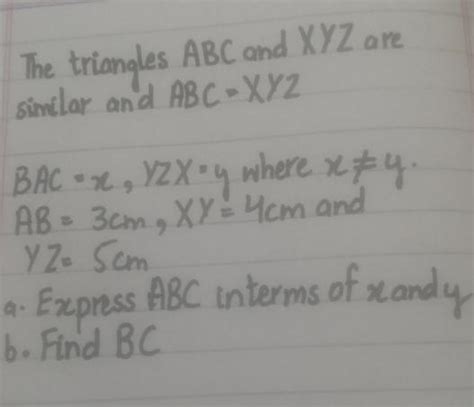 The triangles ABC and XYZ are
similar and ABC = XYZ
BAC = x, YZX = y where x ≠ y.
AB = 3cm, XY = 4cm and
YZ = 5cm
a. Express ABC interms of x and y
b. Find BC